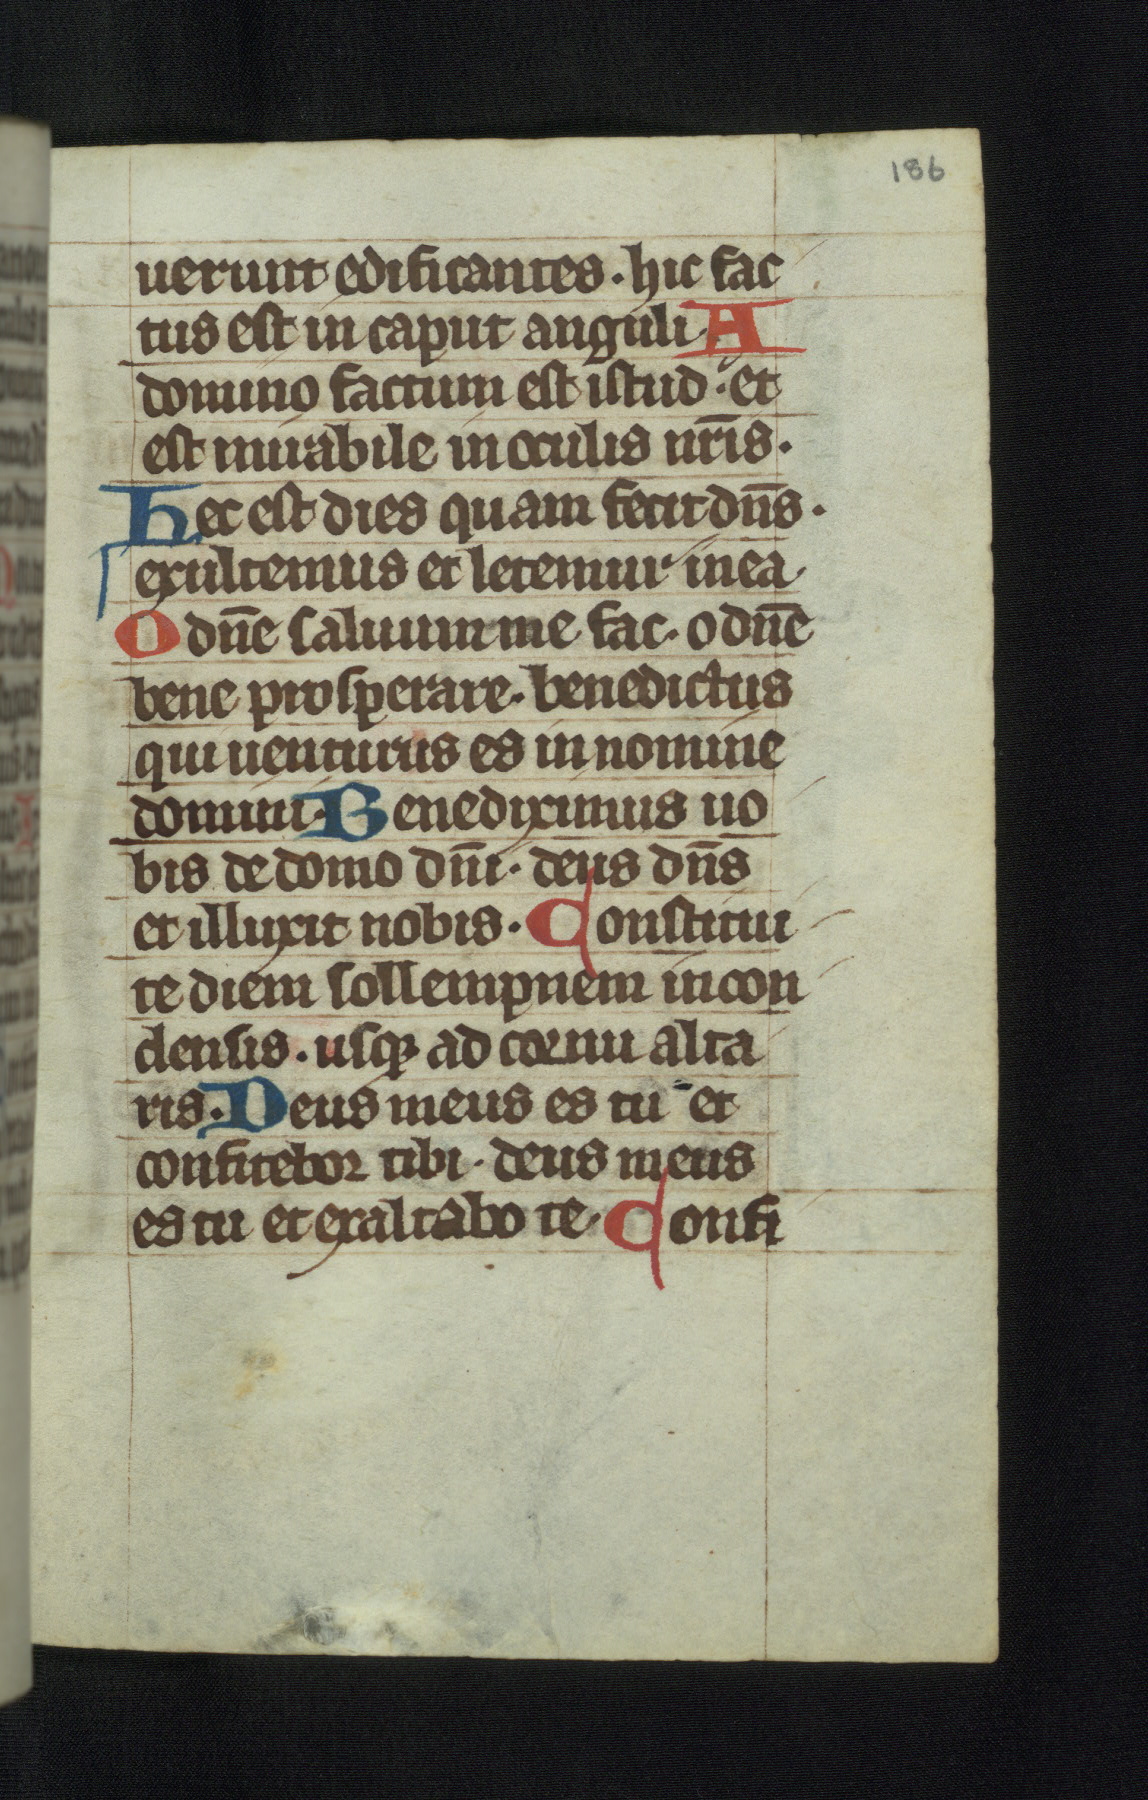 186
uerunt edificantes · hic fac
tus est in caput anguli · A
domino factum est istud · et
est mirabile in oculis nr̄is ·
Hec est dies quam fecit dn̄s ·
exultemus et letemur in ea ·
O dn̄e saluum me fac · o dn̄e
bene prosperare · benedictus
qui uenturus es in nomine
domini · Benediximus uo
bis de domo dn̄i · deus dn̄s
et illuxit nobis · Constitui
te diem sollempnem in con
densis · usqꝫ ad cornu alta
ris · Deus meus es tu et
confitebor tibi · deus meus
es tu et exaltabo te · Confi